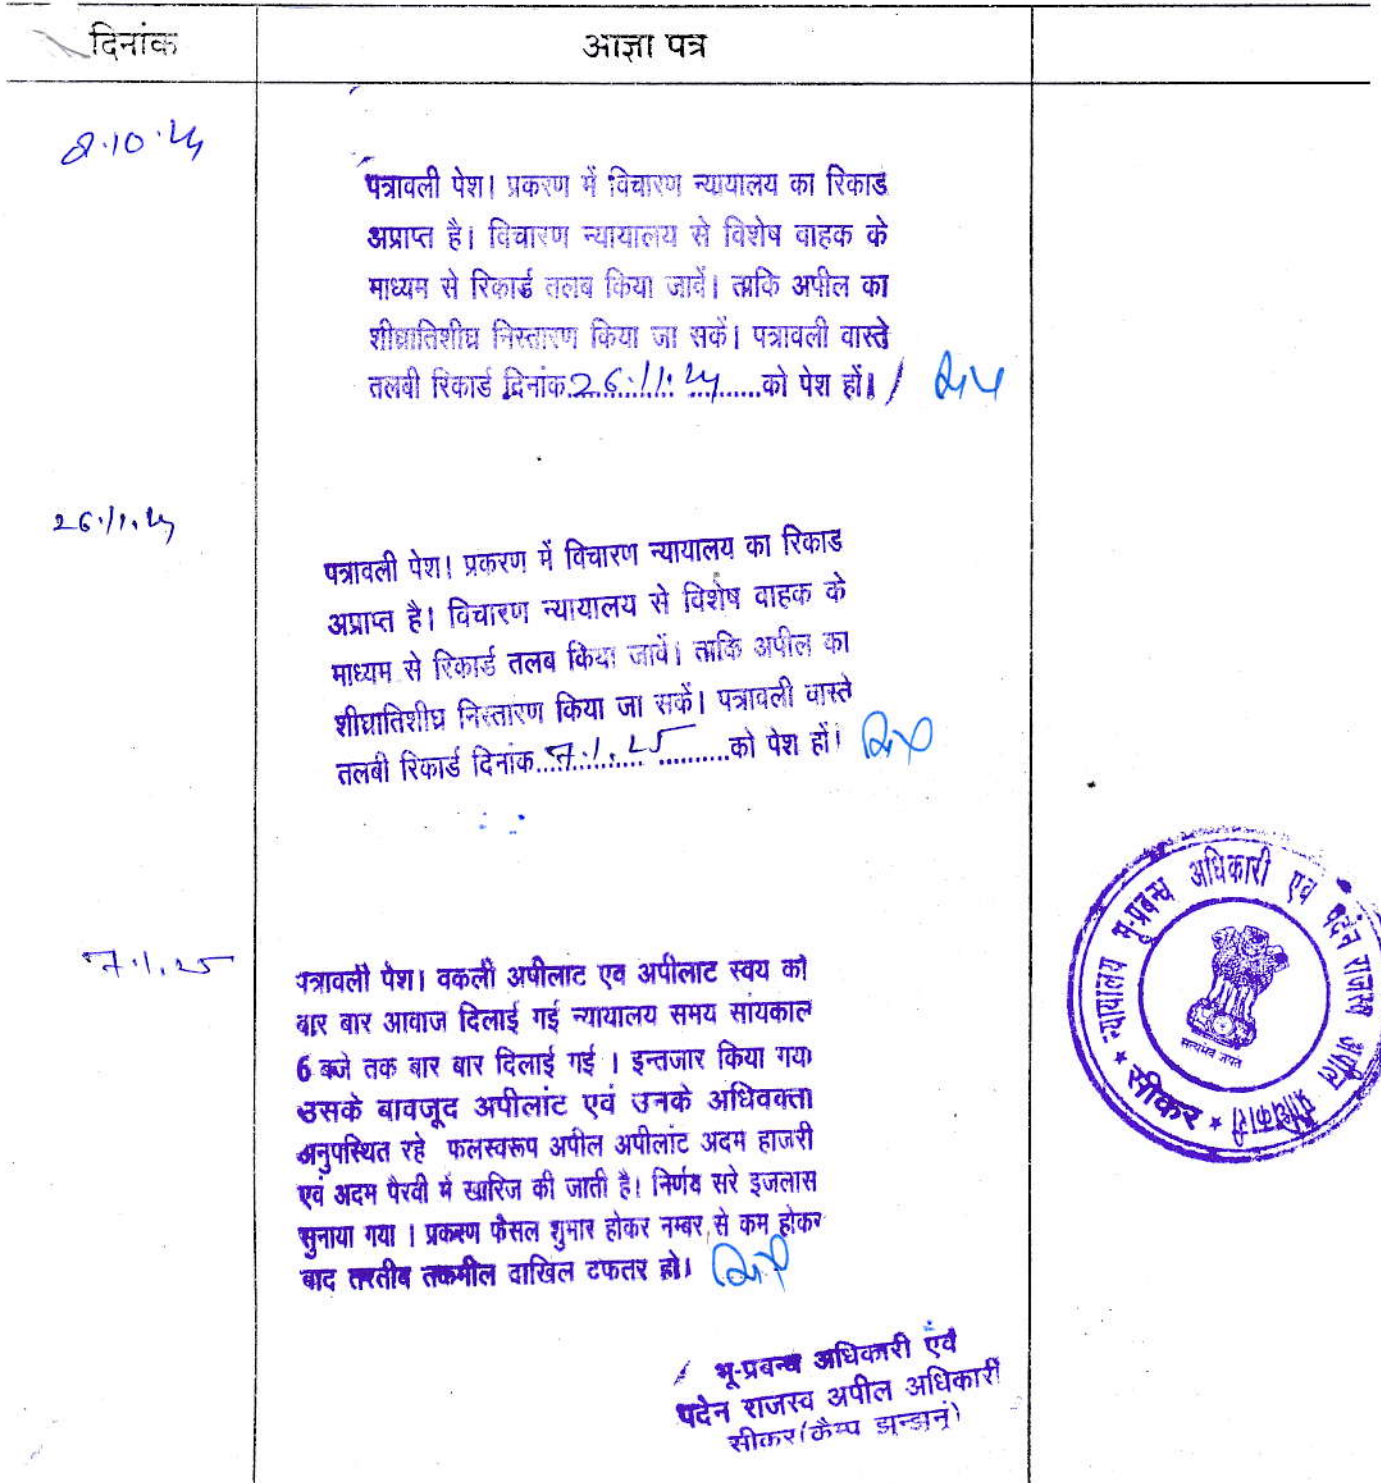 दिनांक
आज्ञा पत्र
8.10.24
पत्रावली पेश। प्रकरण में विचारण न्यायालय का रिकाड
अप्राप्त है। विचारण न्यायालय से विशेष वाहक के
माध्यम से रिकार्ड तलब किया जावें। ताकि अपील का
शीघ्रातिशीघ्र निस्तारण किया जा सकें। पत्रावली वास्ते
तलबी रिकार्ड दिनांक..26.11.24..........को पेश हों।
26.11.24
पत्रावली पेश। प्रकरण में विचारण न्यायालय का रिकाड
अप्राप्त है। विचारण न्यायालय से विशेष वाहक के
माध्यम से रिकार्ड तलब किया जावें। ताकि अपील का
शीघ्रातिशीघ्र निस्तारण किया जा सकें। पत्रावली वास्ते
तलबी रिकार्ड दिनांक...7.1.25..........को पेश हों।
7.1.25
पत्रावली पेश। वकली अपीलाट एव अपीलाट स्वय को
बार बार आवाज दिलाई गई न्यायालय समय सांयकाल
6 बजे तक बार बार दिलाई गई । इन्तजार किया गया
उसके बावजूद अपीलांट एवं उनके अधिवक्ता
अनुपस्थित रहे फलस्वरूप अपील अपीलांट अदम हाजरी
एवं अदम पैरवी मे खारिज की जाती है। निर्णय सरे इजलास
सुनाया गया । प्रकरण फैसल शुमार होकर नम्बर से कम होकर
बाद तरतीब तकमील दाखिल दफतर हो।
न्यायालय भू-प्रबन्ध अधिकारी एवं पदेन राजस्व अपील अधिकारी
* सीकर *
सत्यमेव जयते
भू-प्रबन्ध अधिकारी एवं
पदेन राजस्व अपील अधिकारी
सीकर(कैम्प झुन्झुनूं)